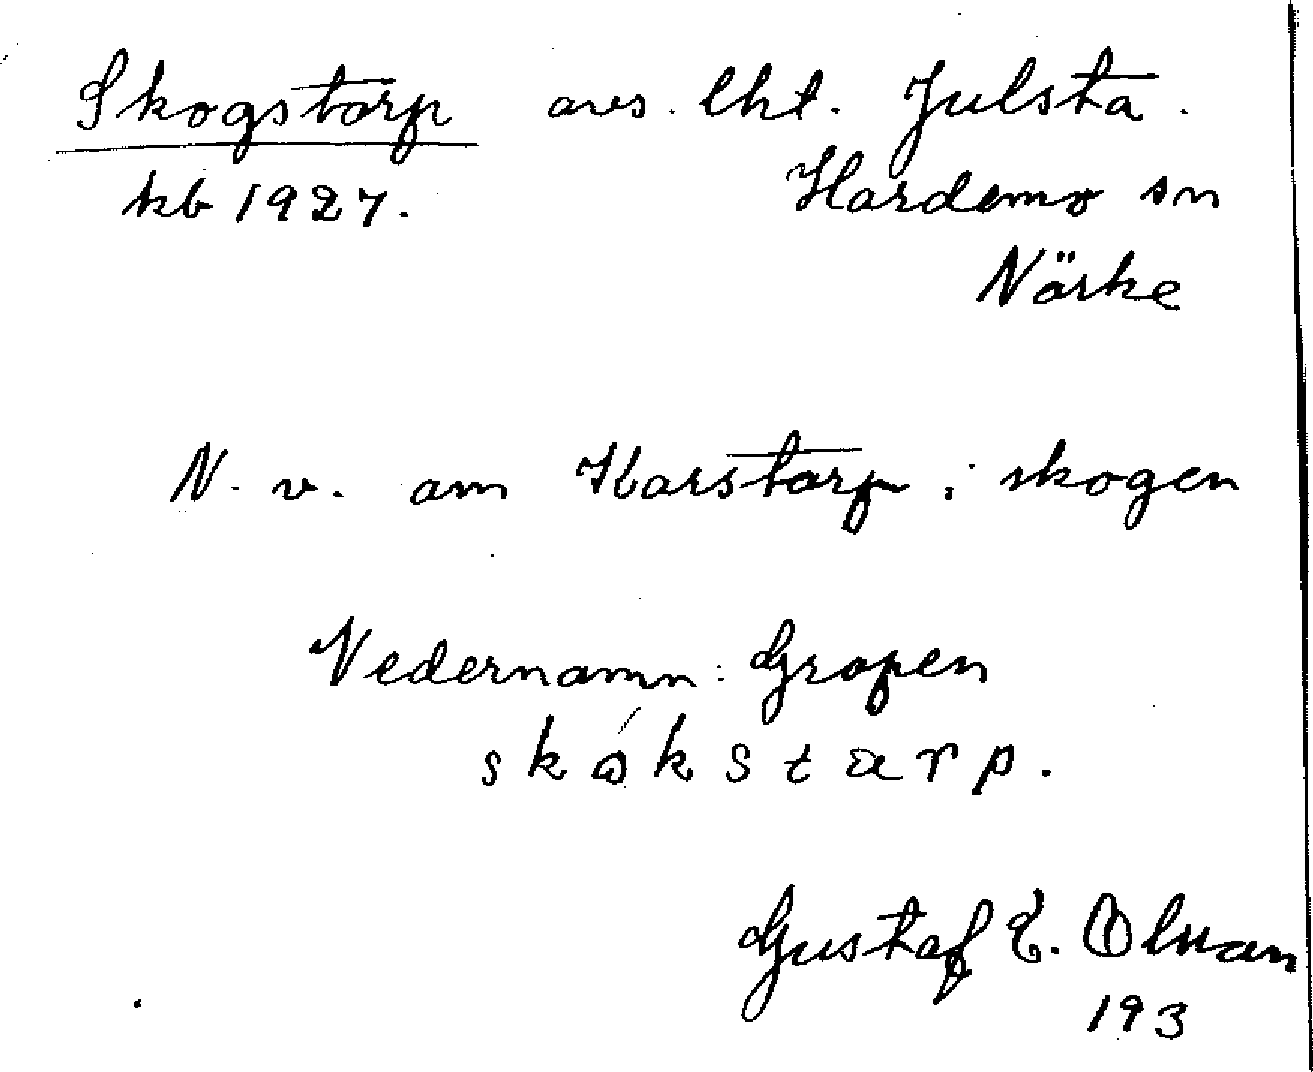 Skogstorp avs. lht. Julsta.
kb 1927. Hardemo sn
Närke
N. v. om Karstorp i skogen
Vedernamn: Gropen
skókstarp.
Gustaf E.
193